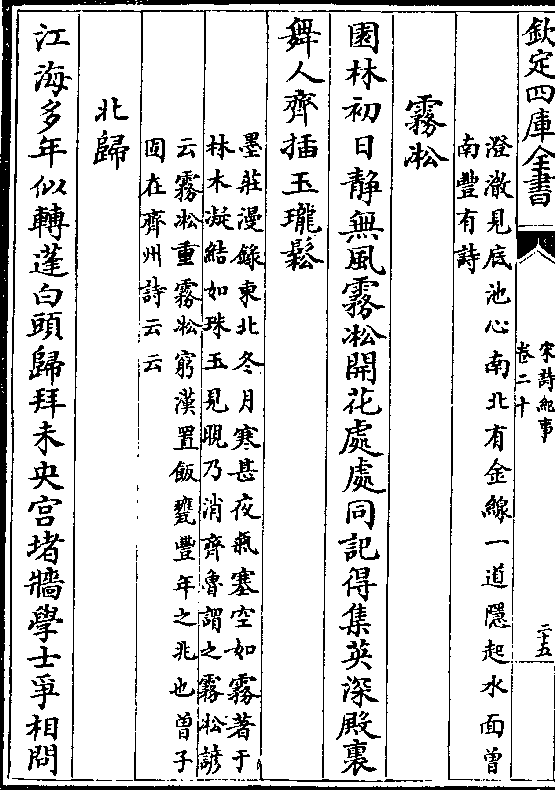 欽定四庫全書
宋詩紀事
卷二十
二十五
澄澈見底池心南北有金線一道隱起水面曾
南豐有詩
霧凇
園林初日靜無風霧凇開花處處同記得集英深殿裏
舞人齊插玉瓏鬆
墨莊漫錄東北冬月寒甚夜氣塞空如霧著于
林木凝結如珠玉見晛乃消齊魯謂之霧凇諺
云霧凇重霧凇窮漢置飯甕豐年之兆也曾子
固在齊州詩云云
北歸
江海多年似轉蓬白頭歸拜未央宮堵牆學士爭相問